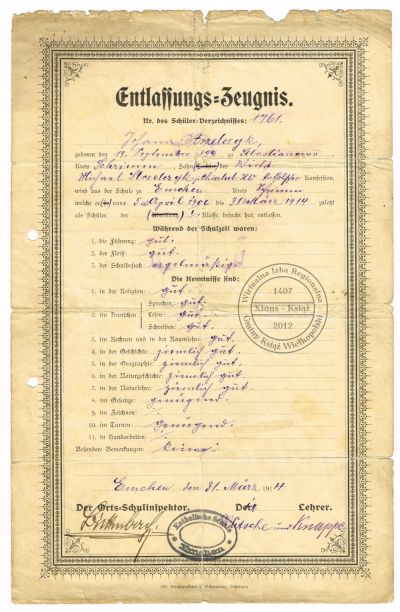 Entlassungs-Zeugnis.
Nr. des Schüler-Verzeichnisses: 1761.
Johann Strzelczyk,
geboren den 19. September 1900 zu Sebastianowo
Kreis Schrimm Sohn des Wirts
Michael Strzelczyk Konfession,
wird aus der Schule zu Emchen Kreis Schrimm
welche er 5. April 1906 bis 31. März 1914 zuletzt
als Schüler der I. Klasse besucht hat, entlassen.
Während der Schulzeit waren:
1. die Führung: gut.
2. der Fleiß: gut.
3. der Schulbesuch: regelmäßig
Die Kenntnisse sind:
1. in der Religion: gut.
Sprechen: gut.
2. im Deutschen Lesen: gut.
Schreiben: gut.
3. im Rechnen und in der Raumlehre: gut.
4. in der Geschichte: ziemlich gut.
5. in der Geographie: ziemlich gut.
6. in der Naturgeschichte: ziemlich gut.
7. in der Naturlehre: ziemlich gut
8. im Gesange: genügend.
9. im Zeichnen:
10. im Turnen: genügend.
11. in Handarbeiten:
Besondere Bemerkungen: keine.
Wirtualna Izba Regionalna
1407
Xions - Książ
2012
Gminy Książ Wielkopolski
Emchen, den 31. März 1914
Der Orts-Schulinspektor. Die Lehrer.
Nitsche und Knappe
Katholische Schule
Emchen